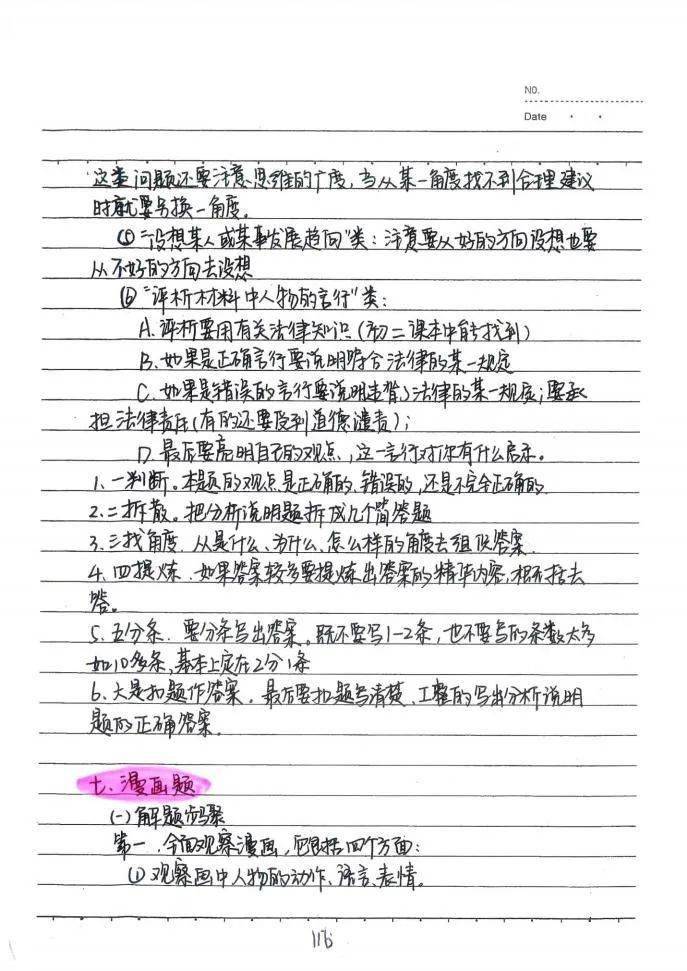 NO.
Date
这类问题还要注意思维的广度,当从某一角度找不到合理建议
时就要另换一角度。
⑤"设想某人或某事发展趋向"类:注意要从好的方向设想也要
从不好的方向去设想
⑥"评析材料中人物的言行"类:
A.评析要用有关法律知识(初二课本中能找到)
B.如果是正确言行要说明符合法律的某一规定
C.如果是错误的言行要说明违背了法律的某一规定;要承
担法律责任(有的还要受到道德谴责);
D.最后要亮明自己的观点,这一言行对你有什么启示。
1.一判断。本题的观点是正确的、错误的,还是不完全正确的.
2.二拆散。把分析说明题拆成几个简答题
3.三找角度.从是什么、为什么、怎么样的角度去组织答案.
4.四提炼.如果答案较多要提炼出答案的精华内容,概括去
答。
5.五分条.要分条写出答案。既不要写1-2条,也不要写的条数太多
如10多条,基本上定在2分1条
6.六是扣题作答案.最后要扣题写清楚、工整的写出分析说明
题的正确答案.
七、漫画题
(一)解题步骤
第一,全面观察漫画,包括四个方面:
①观察画中人物的动作、语言、表情。
116